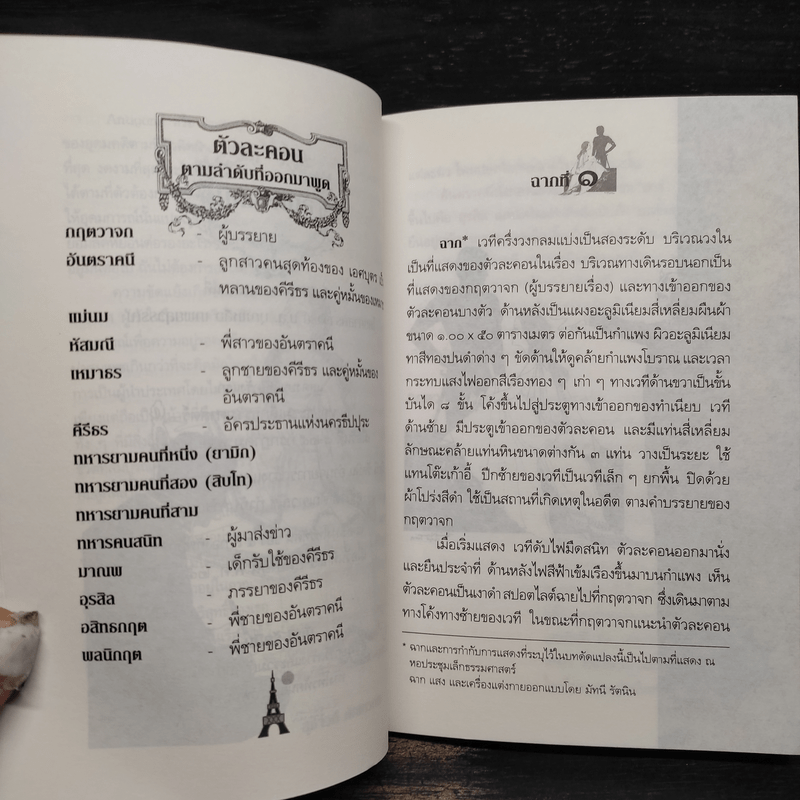 ตัวละคอน
ตามลำดับที่ออกมาพูด
กฤตวาจก - ผู้บรรยาย
อันตราคนี - ลูกสาวคนสุดท้องของ เอศบุตร
หลานของคีรีธร และคู่หมั้นของ
แม่นม
หัสมณี - พี่สาวของอันตราคนี
เหมาธร - ลูกชายของคีรีธร และคู่หมั้นของ
อันตราคนี
คีรีธร - อัครประธานแห่งนครธีปปุระ
ทหารยามคนที่หนึ่ง (ยามิก)
ทหารยามคนที่สอง (สิบโท)
ทหารยามคนที่สาม
ทหารคนสนิท - ผู้มาส่งข่าว
มาณพ - เด็กรับใช้ของคีรีธร
อุรสิล - ภรรยาของคีรีธร
อสิทธกฤต - พี่ชายของอันตราคนี
พลนิกฤต - พี่ชายของอันตราคนี
ฉากที่ ๑
ฉาก* เวทีครึ่งวงกลมแบ่งเป็นสองระดับ บริเวณวงใน
เป็นที่แสดงของตัวละคอนในเรื่อง บริเวณทางเดินรอบนอกเป็น
ที่แสดงของกฤตวาจก (ผู้บรรยายเรื่อง) และทางเข้าออกของ
ตัวละคอนบางตัว ด้านหลังเป็นแผงอะลูมิเนียมสี่เหลี่ยมผืนผ้า
ขนาด ๑.๐๐ x ๕๐ ตารางเมตร ต่อกันเป็นกำแพง ผิวอะลูมิเนียม
ทาสีทองปนดำด่าง ๆ ขัดด้านให้ดูคล้ายกำแพงโบราณ และเวลา
กระทบแสงไฟออกสีเรืองทอง ๆ เก่า ๆ ทางเวทีด้านขวาเป็นขั้น
บันได ๘ ขั้น โค้งขึ้นไปสู่ประตูทางเข้าออกของทำเนียบ เวที
ด้านซ้าย มีประตูเข้าออกของตัวละคอน และมีแท่นสี่เหลี่ยม
ลักษณะคล้ายแท่นหินขนาดต่างกัน ๓ แท่น วางเป็นระยะ ใช้
แทนโต๊ะเก้าอี้ ปีกซ้ายของเวทีเป็นเวทีเล็ก ๆ ยกพื้น ปิดด้วย
ผ้าโปร่งสีดำ ใช้เป็นสถานที่เกิดเหตุในอดีต ตามคำบรรยายของ
กฤตวาจก
เมื่อเริ่มแสดง เวทีดับไฟมืดสนิท ตัวละคอนออกมานั่ง
และยืนประจำที่ ด้านหลังไฟสีฟ้าเข้มเรืองขึ้นมาบนกำแพง เห็น
ตัวละคอนเป็นเงาดำ สปอตไลต์ฉายไปที่กฤตวาจก ซึ่งเดินมาตาม
ทางโค้งทางซ้ายของเวที ในขณะที่กฤตวาจกแนะนำตัวละคอน
* ฉากและการกำกับการแสดงที่ระบุไว้ในบทดัดแปลงนี้เป็นไปตามที่แสดง ณ
หอประชุมเล็กธรรมศาสตร์
ฉาก แสง และเครื่องแต่งกายออกแบบโดย มัทนี รัตนิน